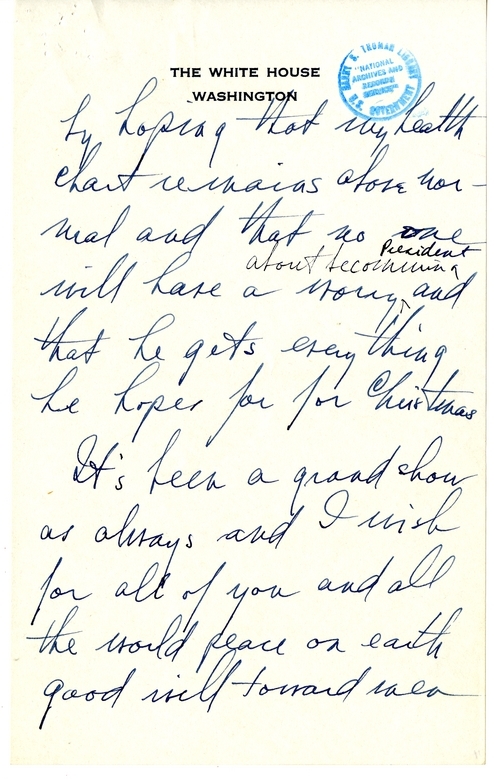 THE WHITE HOUSE
WASHINGTON
HARRY S. TRUMAN LIBRARY
"NATIONAL
ARCHIVES AND
RECORDS
SERVICE"
U.S. GOVERNMENT
by hoping that my health
chart remains above nor-
mal and that no one
President
about becomming
will have a worry and
that he gets every thing
he hopes for for Christmas
It's been a grand show
as always and I wish
for all of you and all
the world peace on earth
good will toward men